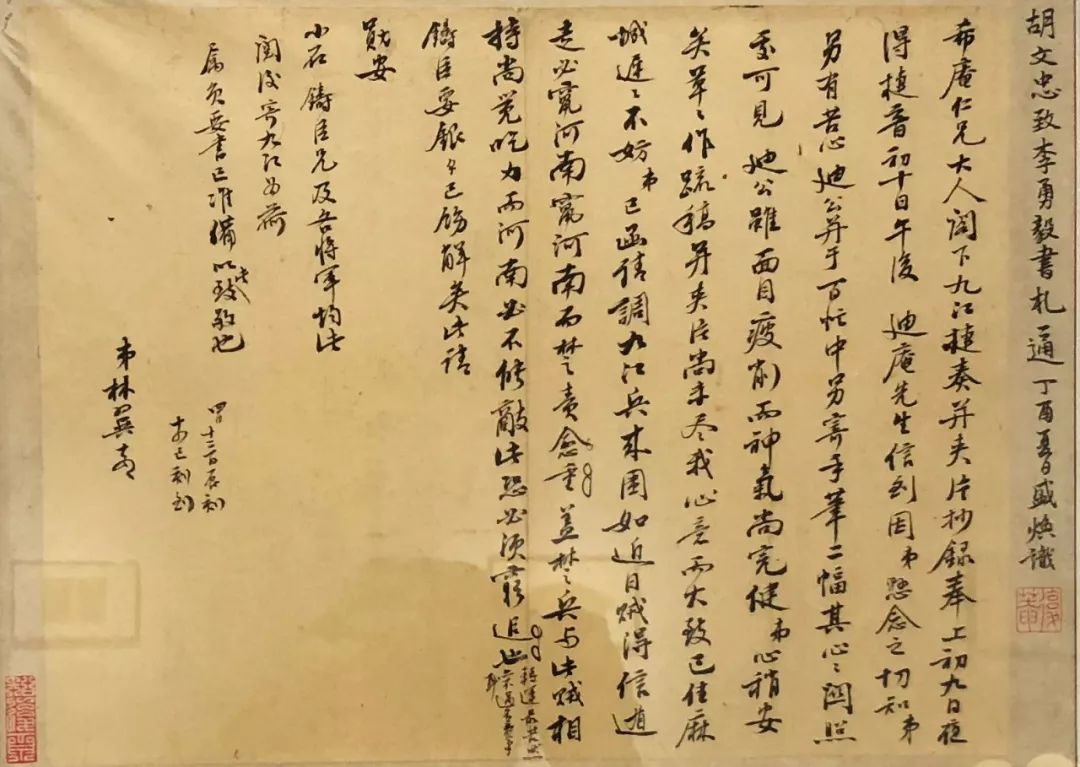 胡文忠致李勇毅書札一通 丁酉夏日盛煥識
希庵仁兄大人閣下九江捷奏并夾片抄錄奉上初九日夜
得捷音初十日午後 迪庵先生信到因弟懸念之切知弟
另有苦心迪公并于百忙中另寄手筆二幅其心心關照
可見 迪公雖面目疲削而神氣尚完健弟心稍安
矣草草作疏稿并夾片尚未尽我心意而大致已佳麻
城遲遲不妨弟已函信調九江兵來圍如近日賊得信遁
走必竄河南竄河南而楚之責愈重蓋楚兵与此賊相
持尚覺吃力而河南必不能敵此恐必須窮追也
鑄臣要銀已飭解矣此請
勛安
小石 鑄臣兄及各將軍均此
閱後寄九江為荷
屬負要書已準備以致敬也
弟林翼頓
四月十二日辰刻
巳刻到